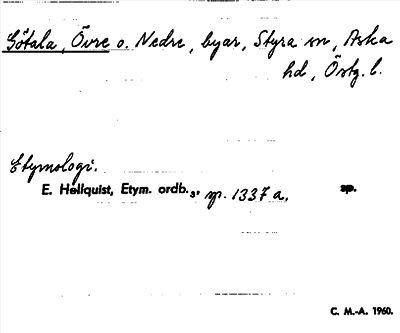 Götala, Övre o. Nedre, byar, Styra sn, Aska
hd, Östg. l.
Etymologi.
E. Hellquist, Etym. ordb.3, sp. 1337 a. sp.
C. M.-A. 1960.